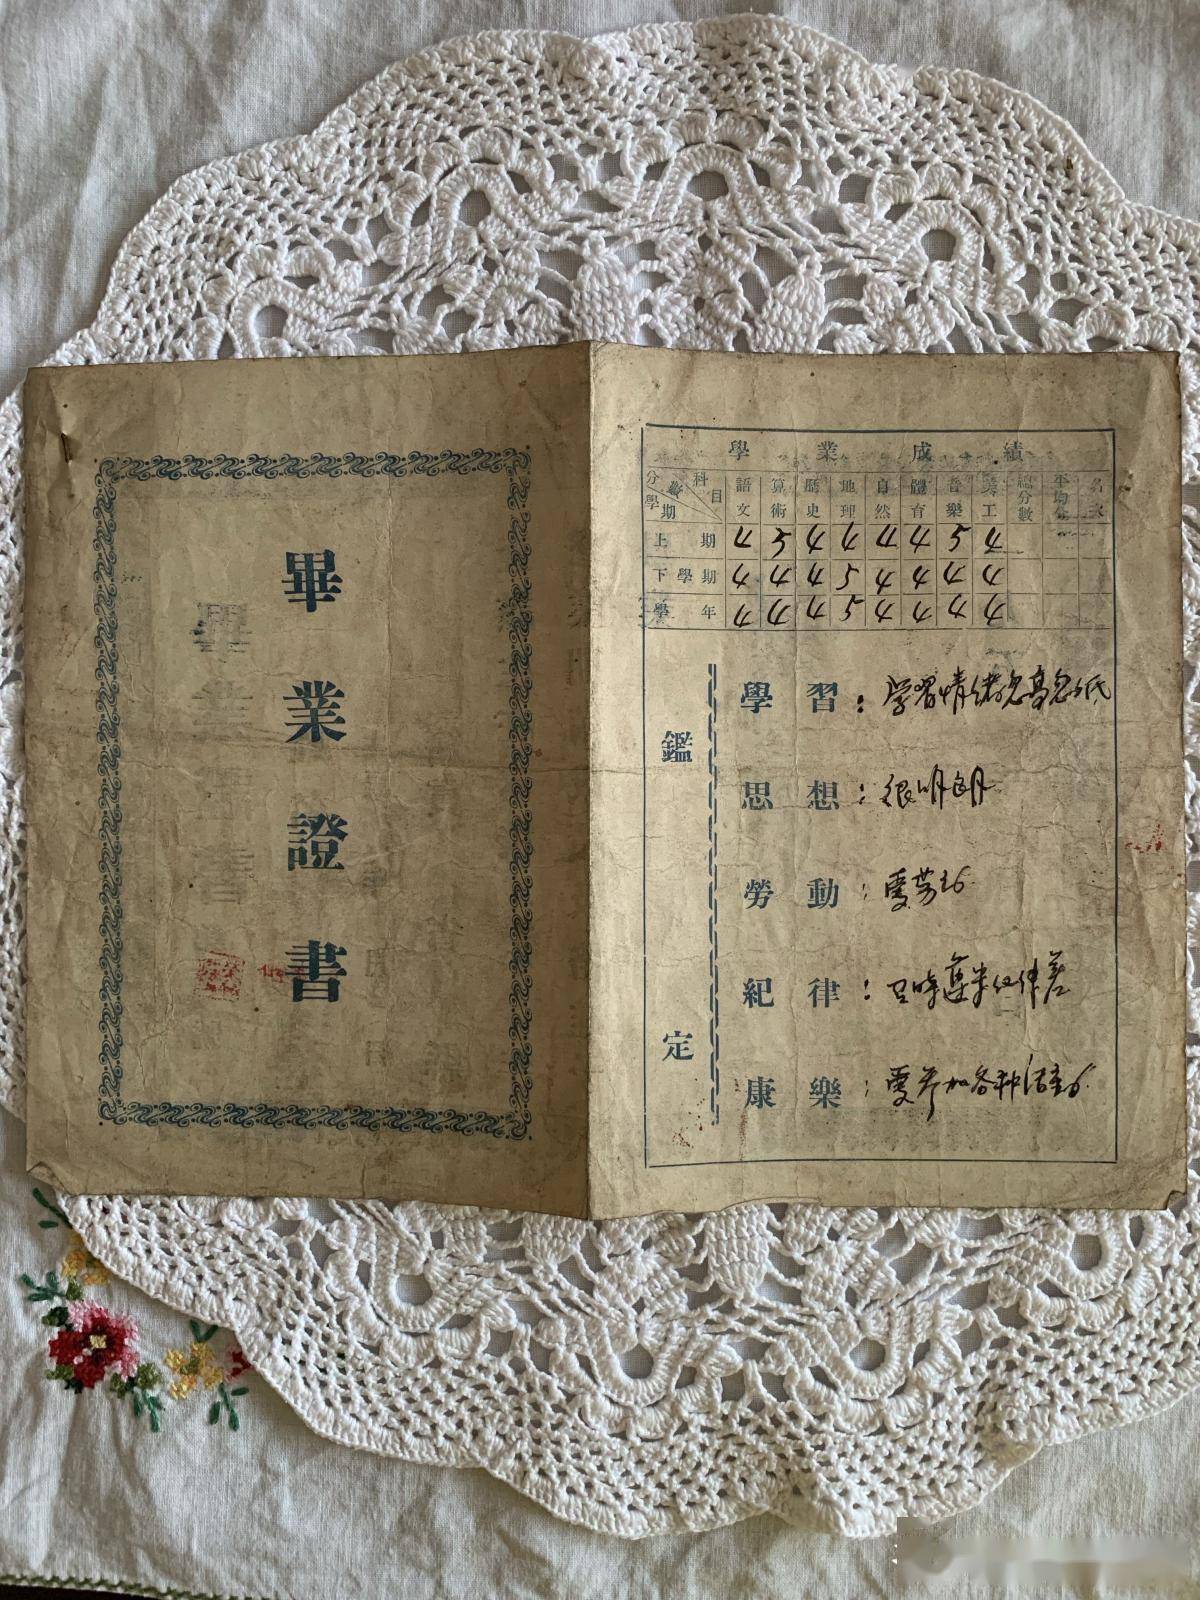 畢業證書
學業成績
分數 科目 學期 語文 算術 歷史 地理 自然 體育 音樂 美工 總分數 平均分 名次
上期 4 5 4 4 4 4 5 4
下學期 4 4 4 5 4 4 4 4
學年 4 4 4 5 4 4 4 4
鑑定
學習：学習情绪忽高忽低
思想：很明朗
勞動：愛劳动
紀律：有時遵守纪律差
康樂：愛参加各种活动